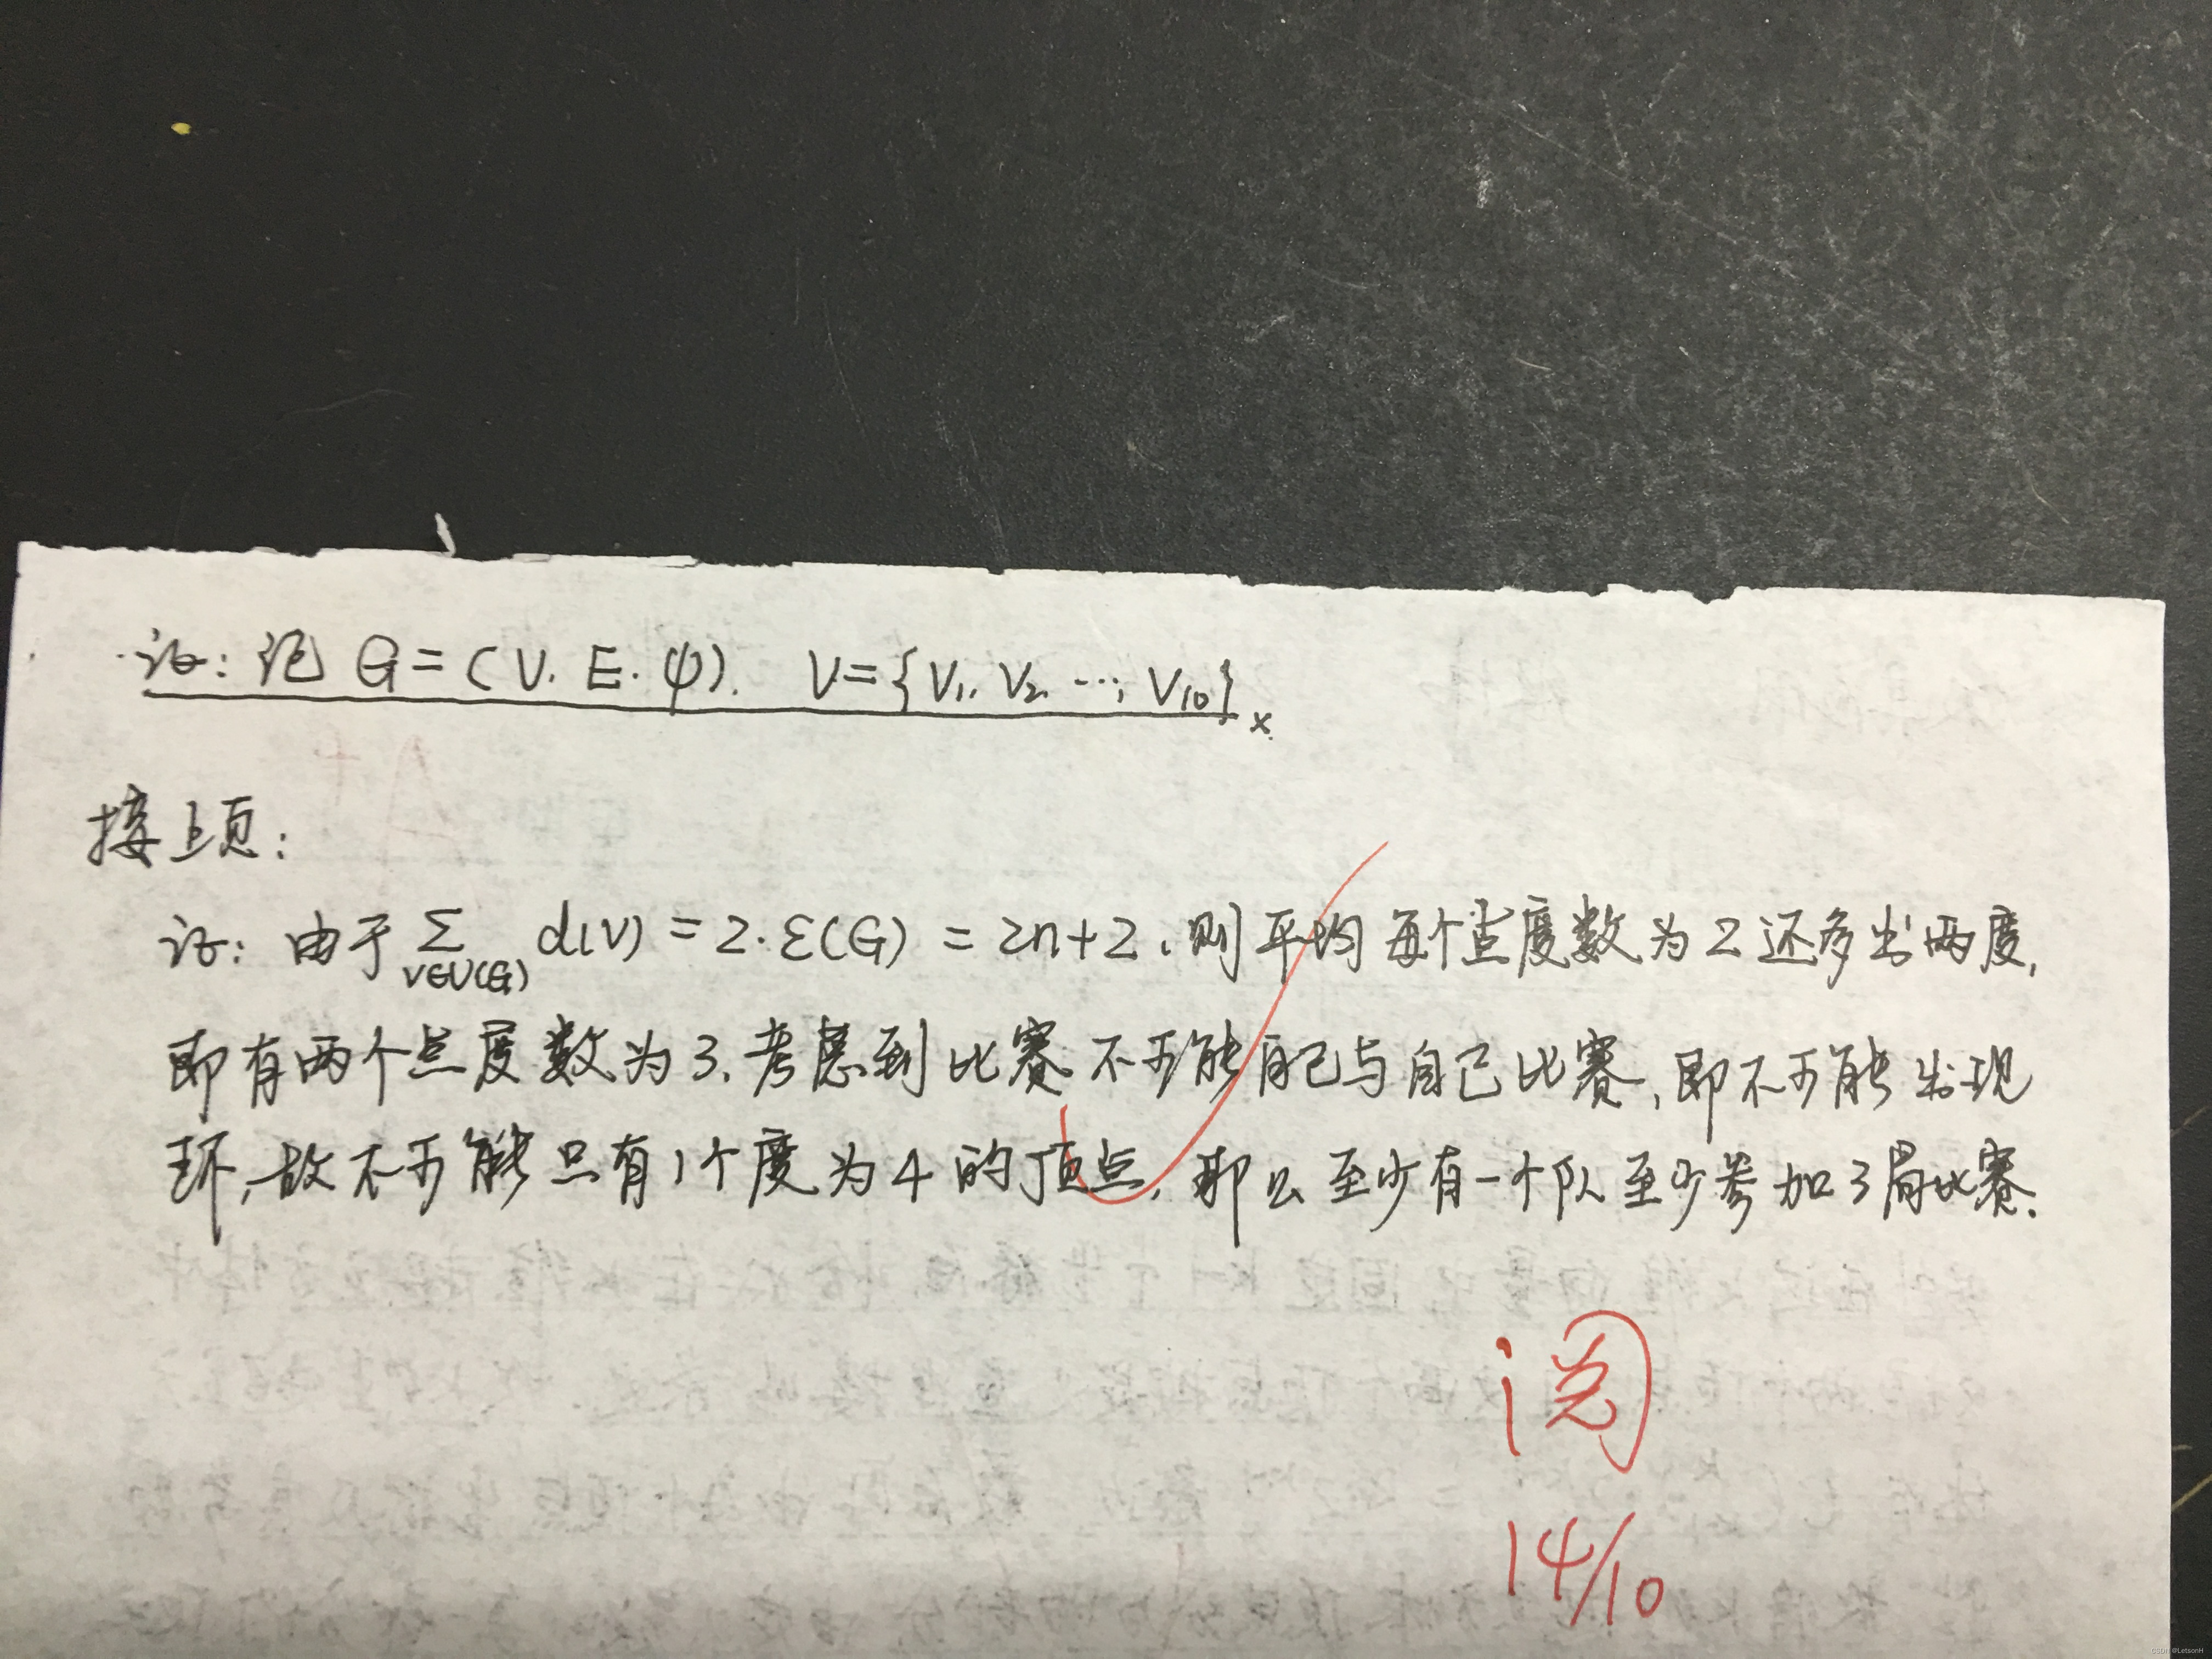 证: 记 G=(V. E. ψ). V={V₁. V₂. …, V₁₀}ₓ
接上页:
证: 由于 ∑_{v∈V(G)} d(v) = 2·ε(G) = 2n+2. 则平均每个点度数为2还多出两度,
即有两个点度数为3. 考虑到比赛不可能自己与自己比赛, 即不可能出现
环, 故不可能只有1个度为4的顶点. 那么至少有一个队至少参加3局比赛.
阅
14/10
CSDN @LetsonH